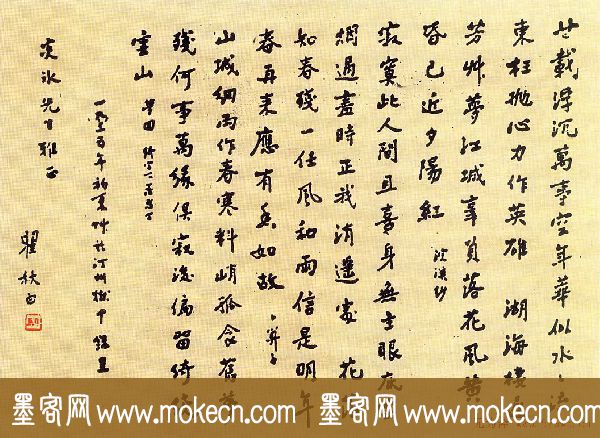 廿載浮沉萬事空年華似水〻流
東枉拋心力作英雄 湖海棲
芳艸夢江城辜負落花風黃
昏已近夕陽紅 浣溪紗
寂寞此人間且喜身無主眼底
過盡時正我消遙處 花
知春殘一任風和雨信是明年
春再来應有香如故
山城細雨作春寒料峭孤衾舊夢
殘何事萬緣俱寂後偏留綺
雲山
一九三五年初夏艸於汀州獄中 錄呈
炎冰先生雅正
瞿秋白
墨客网 www.mokecn.com 墨客网 www.mokecn.com